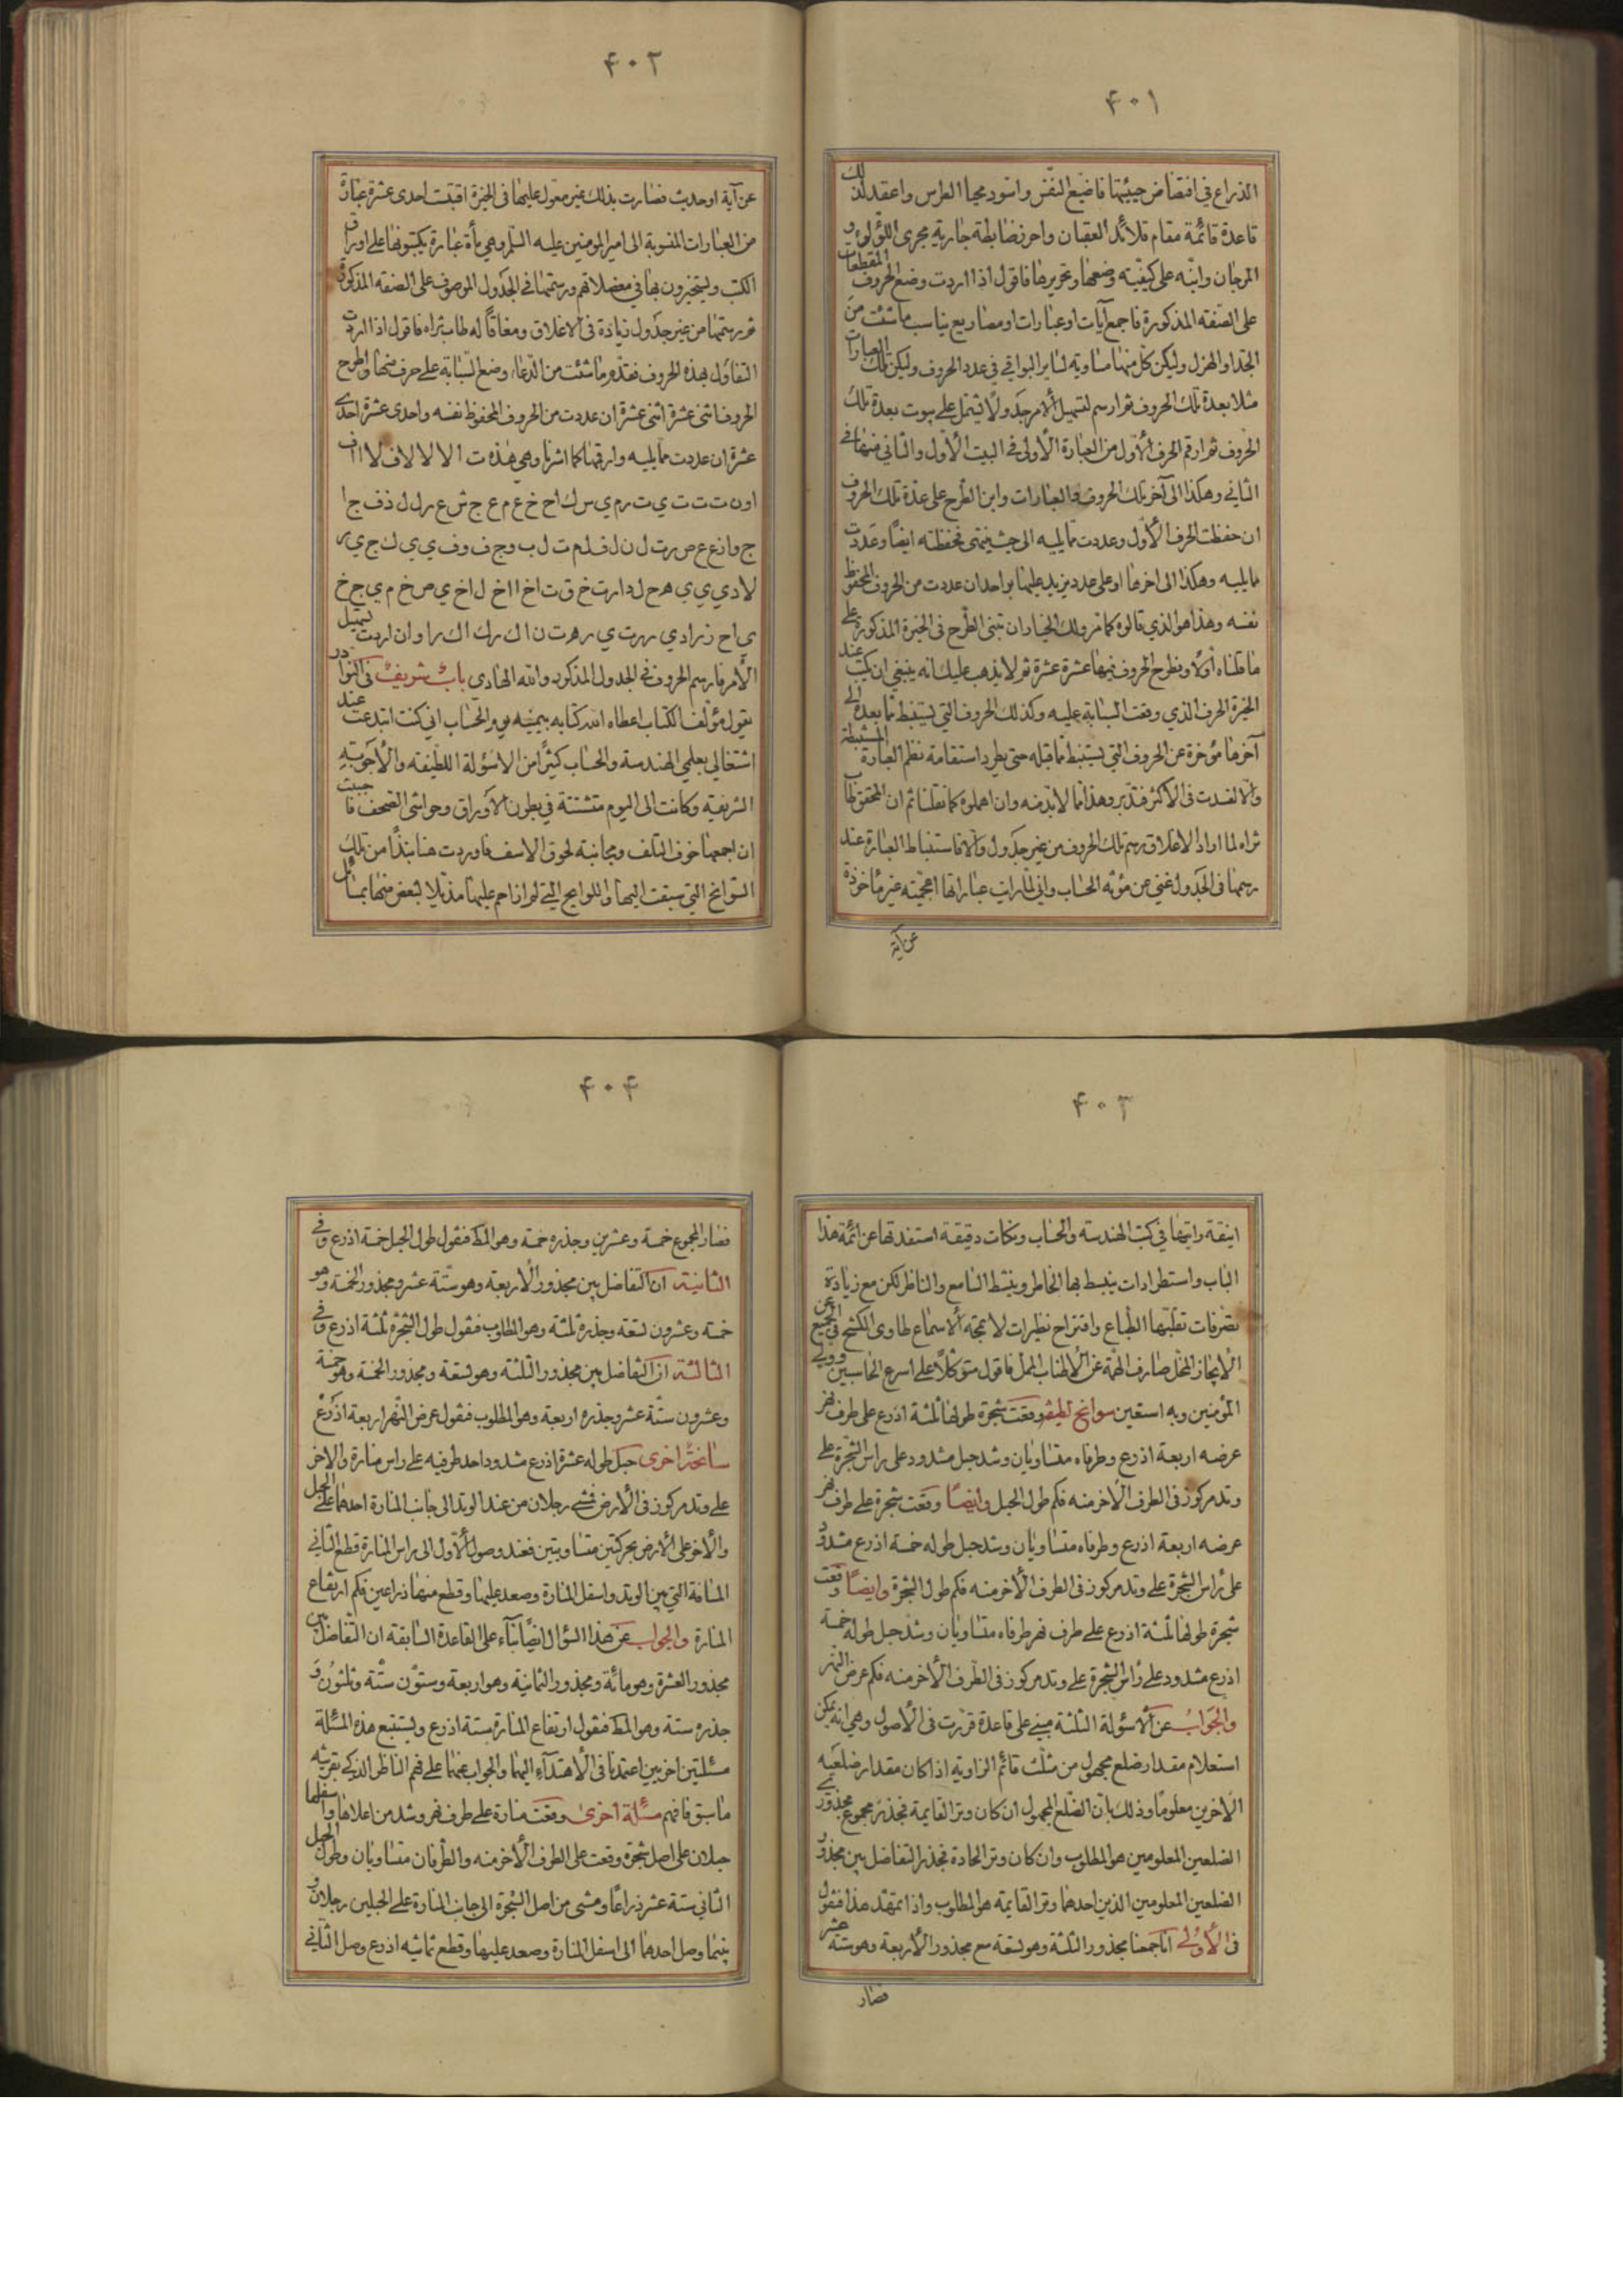 ۴۰۱
الذراع في افتضاض جيئتها فاضيع النفس واسود محيا الطرس واعقد لك
قاعدة قائمة مقام قلائد العقيان واحرز ضابطة جارية مجرى اللؤلؤ و
المرجان وانبه على كيفية وضعها وتحريرها فاقول اذا اردت وضع الحروف المقطعات
على الصفة المذكورة فاجمع آيات او عبارات او مصاريع يناسب ما شئت من
الجد او الهزل وليكن كل منها مساوية لساير البواقي في عدد الحروف وليكن تلك العبارات
مثلا بعدة تلك الحروف ثم ارسم لتسهيل الامر جدولا يشتمل على بيوت بعدة تلك
الحروف ثم ارقم الحرف الاول من العبارة الاولى في البيت الاول والثاني منها في
الثاني وهكذا الى آخر تلك الحروف والعبارات وابن الطرح على عدة تلك الحروف
ان حفظت الحرف الاول وعددت مما يليه الى حيث ينتهى فحفظته ايضا وعددت
مما يليه وهكذا الى اخرها او على عدد يزيد عليها بواحد ان عددت من الحروف المحفوظ
نفسه وهذا هو الذي قالوه كما مر ولك الخيار ان تبنى الطرح في الخيرة المذكورة على
ما قلناه اولا وتطرح الحروف فيها عشرة عشرة ثم لا يذهب عليك انه ينبغي ان يكتب عند
الخيرة الحرف الذي وقعت السبابة عليه وكذلك الحروف التي يستنبط مما بعده الى
آخرها مؤخرة عن الحروف التي يستنبط مما قبله حتى يطرد استقامة نظم العبارة المستنبطة
والا لفسدت في الاكثر فتدبر وهذا مما لا بد منه وان اهملوه كما نقلنا ثم ان المحقق طاب
ثراه لما اراد الاغلاق رسم تلك الحروف من غير جدول والا فاستنباط العبارة عند
رسمها في الجدول غني عن مؤنة الحساب واني لما رايت عباراتها اعجمية غير مأخوذة
عن آية
۴۰۲
عن آية او حديث فصارت بذلك غير معول عليها في الخيرة اقتبست احدى عشرة عبارة
من العبارات المنسوبة الى امير المومنين عليه السلم وهي مأة عبارة يكتبونها على اوراق
الكتب ويستخيرون بها في معضلاتهم ورسمتها في الجدول الموصوف على الصفة المذكورة
ثم رسمتها من غير جدول زيادة في الاغلاق ومعاقا له طاب ثراه فاقول اذا اردت
التفاؤل بهذه الحروف فقدم ما شئت من الدعاء وضع السبابة على حرف منها واطرح
الحروف اثنى عشرة اثنى عشرة ان عددت من الحروف المحفوظ نفسه واحدى عشرة احدى
عشرة ان عددت مما يليه وارقمها كما اشرنا وهي هذه ت ا لا لا لا ف لا ا ا ف
ا و ن ت ت ت ي ت ر م ي س ل ا ح خ ع م ع ج ش ع ر ل ل ذ ف ج ا
ج و ا ن ع ع ص ر ت ل ن ل ف ل م ت ل ب و ج ف و ف ي ي ي ك ج ي ر
لا د ي ي ي ه ح ل د ا ر ت خ ق ت ا خ ا ا خ ل ا خ ي ص خ م ي ج خ
ي ا ح ز ر ا د ي ر ر ت ي ر ه ت ن ا ك ر ك ا ك ر ا و ان اردت تسهيل
الامر فارسم الحروف في الجدول المذكور والله الهادي باب شريف في النوادر
يقول مؤلف الكتاب اعطاه الله كتابه بيمينه يوم الحساب اني كنت ابتدعت عند
اشتغالي بعلمي الهندسة والحساب كثيرا من الاسؤلة اللطيفة والاجوبة
الشريفة وكانت الى اليوم متشتتة في بطون الاوراق وحواشي الصحف فاحببت
ان اجمعها خوف التلف ومجانبة لحوق الاسف فاوردت هنا نبذا من تلك
السوانح التي سبقت اليها واللوايح التي لم ازاحم عليها مذيلا لبعض منها بمسائل
۴۰۳
انيقة رايتها في كتب الهندسة والحساب ونكات دقيقة استفدتها عن ائمة هذا
الباب واستطرادات ينبسط بها الخاطر وينشط السامع والناظر لكن مع زيادة
تصرفات تقبلها الطباع واقتراح نظيرات لا تمجه الاسماع طاوى الكشح في الجميع عن
الايجاز المخل صارف الهمة عن الاطناب الممل فاقول متوكلا على اسرع الحاسبين وولي
المؤمنين وبه استعين سوانح لطيفة وقعت شجرة طولها ثلثة اذرع على طرف نهر
عرضه اربعة اذرع وطرفاه متساويان وشد حبل مشدود على راس الشجرة على
وتد مركوز في الطرف الاخر منه فكم طول الحبل وايضا وقعت شجرة على طرف نهر
عرضه اربعة اذرع وطرفاه متساويان وشد حبل طوله خمسة اذرع مشدود
على راس الشجرة على وتد مركوز في الطرف الاخر منه فكم طول الشجرة وايضا وقعت
شجرة طولها ثلثة اذرع على طرف نهر طرفاه متساويان وشد حبل طوله خمسة
اذرع مشدود على راس الشجرة على وتد مركوز في الطرف الاخر منه فكم عرض النهر
والجواب عن الاسؤلة الثلثة مبني على قاعدة قررت في الاصول وهي انه يمكن
استعلام مقدار ضلع مجهول من مثلث قائم الزاوية اذا كان مقدار ضلعيه
الاخرين معلوما وذلك بان الضلع المجهول ان كان وتر القايمة فجذر مجموع مجذوري
الضلعين المعلومين هو المطلوب وان كان وتر الحادة فجذر التفاضل بين مجذور
الضلعين المعلومين الذين احدهما وتر القايمة هو المطلوب واذا تمهد هذا فنقول
في الاولى انا جمعنا مجذور الثلثة وهو تسعة مع مجذور الاربعة وهو ستة عشر
فصار
۴۰۴
فصار المجموع خمسة وعشرين وجذره خمسة وهو المط فنقول طول الحبل خمسة اذرع وفي
الثانية ان التفاضل بين مجذور الاربعة وهو ستة عشر ومجذور الخمسة وهو
خمسة وعشرون تسعة وجذره ثلثة وهو المطلوب فنقول طول الشجرة ثلثة اذرع وفي
الثالثة ان التفاضل بين مجذور الثلثة وهو تسعة ومجذور الخمسة وهو خمسة
وعشرون ستة عشر وجذره اربعة وهو المطلوب فنقول عرض النهر اربعة اذرع
سانحة اخرى حبل طوله عشرة اذرع مشدود احد طرفيه على راس منارة والاخر
على وتد مركوز في الارض فمشى رجلان من عند الوتد الى جانب المنارة احدهما على الحبل
والاخر على الارض بحركتين متساويتين فعند وصول الاول الى راس المنارة قطع الثاني
المسافة التي بين الوتد واسفل المنارة وصعد عليها وقطع منها ذراعين فكم ارتفاع
المنارة والجواب عن هذا السؤال ايضا بناء على القاعدة السابقة ان التفاضل بين
مجذور العشرة وهو مائة ومجذور الثمانية وهو اربعة وستون ستة وثلثون و
جذره ستة وهو المط فنقول ارتفاع المنارة ستة اذرع ويستتبع هذه المسئلة
مسئلتين اخريين اعتمدنا في الاهتداء اليهما والجواب عنهما على فهم الناظر الذكي بقرينة
ما سبق فافهم مسئلة اخرى وقعت منارة على طرف نهر وشد من اعلاها واسفلها
حبلان على اصل شجرة وقعت على الطرف الاخر منه والطرفان متساويان وطول الحبل
الثاني ستة عشر ذراعا ومشى من اصل الشجرة الى جانب المنارة على الحبلين رجلان و
بينما وصل احدهما الى اسفل المنارة وصعد عليها وقطع ثمانية اذرع وصل الثاني